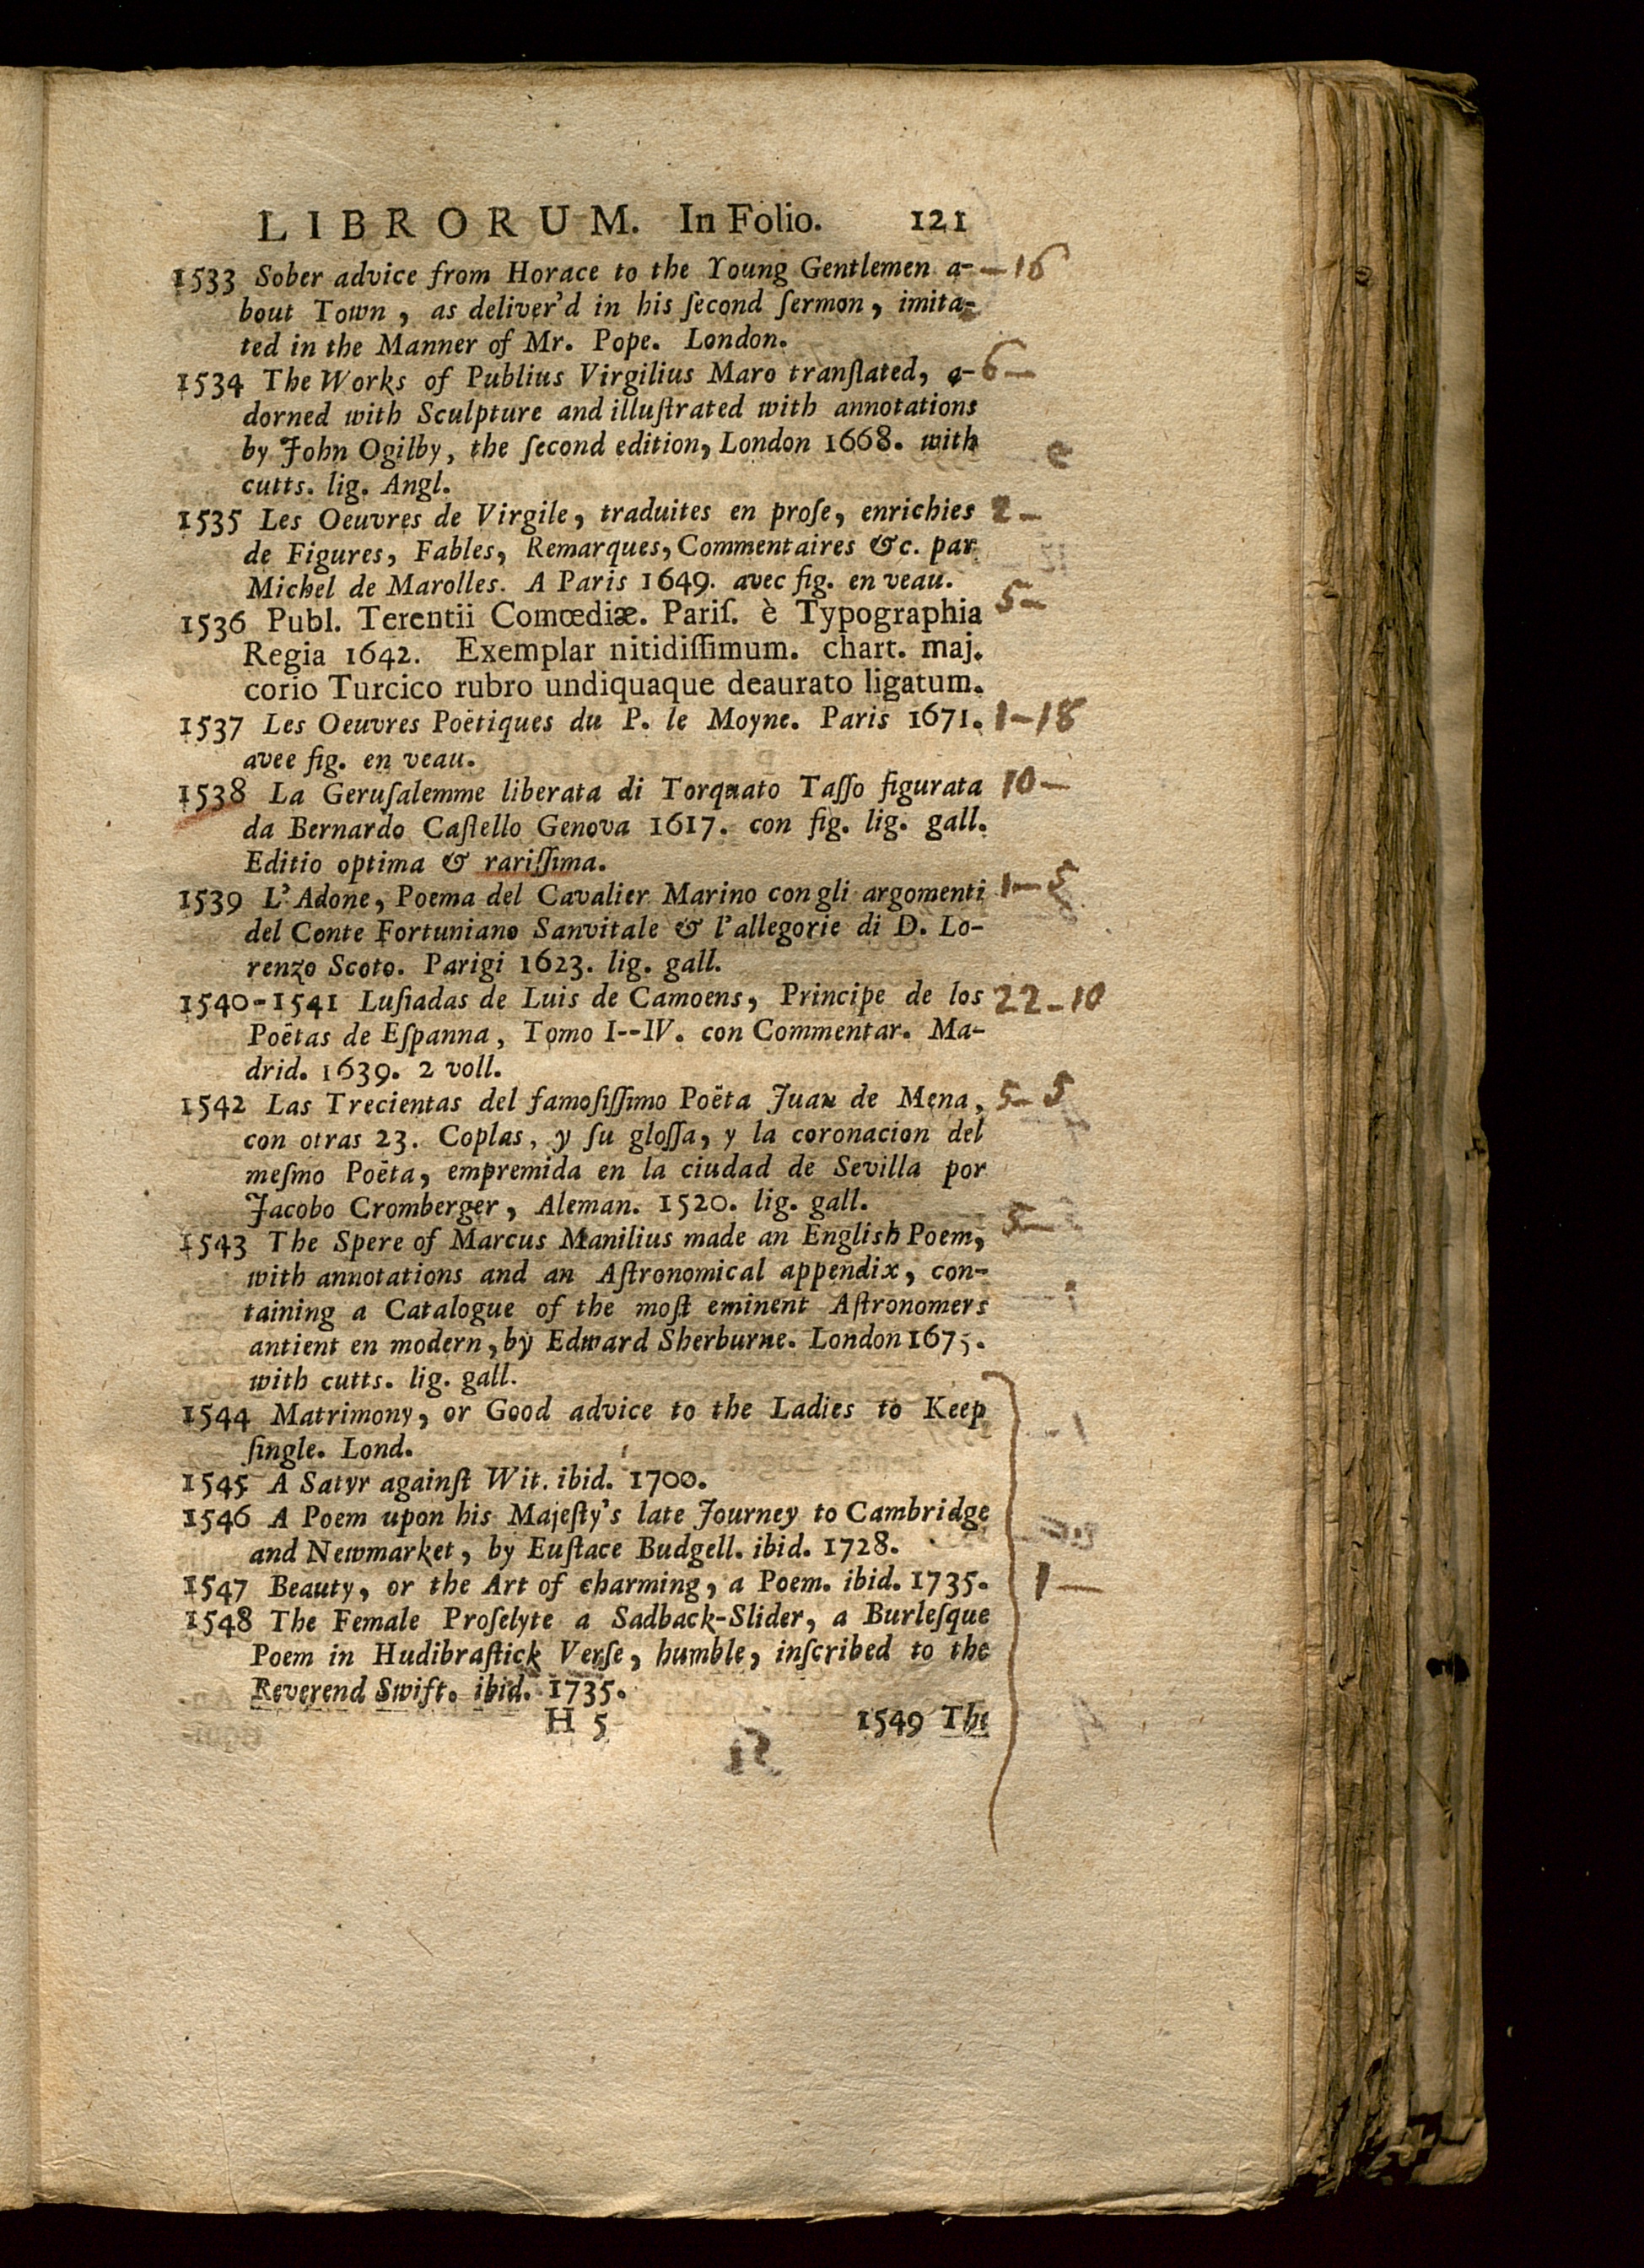 LIBRORUM. In Folio. 121
1533 Sober advice from Horace to the Young Gentlemen a- — 16
bout Town, as deliver'd in his ſecond ſermon, imita-
ted in the Manner of Mr. Pope. London.
1534 The Works of Publius Virgilius Maro tranſlated, a- 6 —
dorned with Sculpture and illuſtrated with annotations
by John Ogilby, the ſecond edition, London 1668. with
cutts. lig. Angl.
1535 Les Oeuvres de Virgile, traduites en proſe, enrichies 2 —
de Figures, Fables, Remarques, Commentaires &c. par
Michel de Marolles. A Paris 1649. avec fig. en veau.
1536 Publ. Terentii Comœdiæ. Pariſ. è Typographia 5 —
Regia 1642. Exemplar nitidiſſimum. chart. maj.
corio Turcico rubro undiquaque deaurato ligatum.
1537 Les Oeuvres Poëtiques du P. le Moyne. Paris 1671. 1 — 18
avee fig. en veau.
1538 La Geruſalemme liberata di Torquato Taſſo figurata 10 —
da Bernardo Caſtello Genova 1617. con fig. lig. gall.
Editio optima & rariſſima.
1539 L'Adone, Poema del Cavalier Marino con gli argomenti 1 — 5
del Conte Fortuniano Sanvitale & l'allegorie di D. Lo-
renzo Scoto. Parigi 1623. lig. gall.
1540-1541 Luſiadas de Luis de Camoens, Principe de los 22 — 10
Poëtas de Eſpanna, Tomo I--IV. con Commentar. Ma-
drid. 1639. 2 voll.
1542 Las Trecientas del famoſiſſimo Poëta Juan de Mena, 5 — 5
con otras 23. Coplas, y ſu gloſſa, y la coronacion del
meſmo Poëta, empremida en la ciudad de Sevilla por
Jacobo Cromberger, Aleman. 1520. lig. gall.
1543 The Spere of Marcus Manilius made an English Poem, 5 —
with annotations and an Aſtronomical appendix, con-
taining a Catalogue of the moſt eminent Aſtronomers
antient en modern, by Edward Sherburne. London 1675.
with cutts. lig. gall.
1544 Matrimony, or Good advice to the Ladies to Keep
ſingle. Lond.
1545 A Satyr againſt Wit. ibid. 1700.
1546 A Poem upon his Majeſty's late Journey to Cambridge
and Newmarket, by Euſtace Budgell. ibid. 1728.
1547 Beauty, or the Art of charming, a Poem. ibid. 1735. 1 —
1548 The Female Proſelyte a Sadback-Slider, a Burleſque
Poem in Hudibraſtick Verſe, humble, inſcribed to the
Reverend Swift. ibid. 1735.
H 5 1549 The